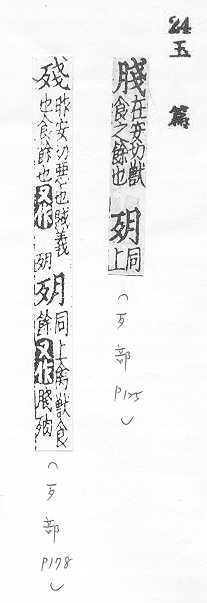 24 玉篇
䏼在安切獸食之餘也
同上
(歹部 P125)
殘昨安切惡也賊義也食餘也又作
同上禽獸食餘又作䏼
(歹部 P178)